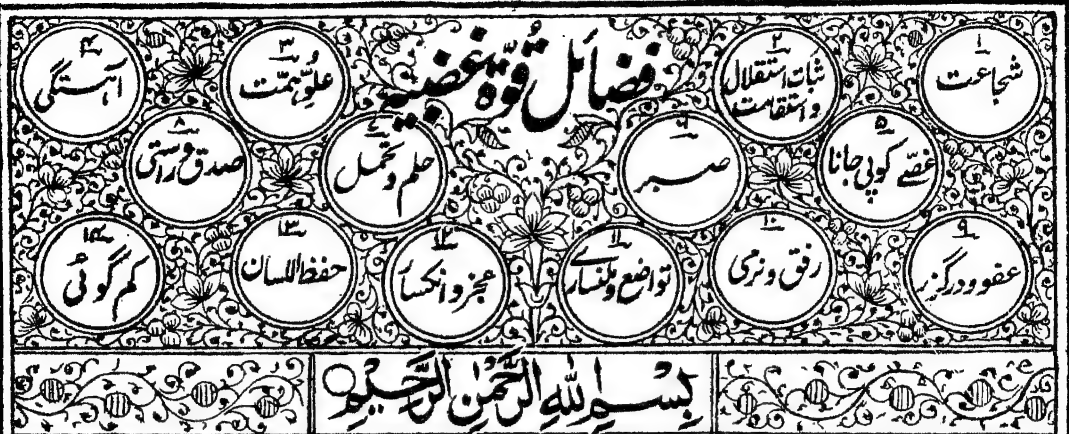 فضائل قوّۂ غضبیہ
۱
شجاعت
۲
ثبات استقلال
و استقامت
۳
علوِّ ہمّت
۴
آہستگی
۵
غصّے کو پی جانا
۶
صبر
۷
حلم و تحمل
۸
صدق و راستی
۹
عفو و درگزر
۱۰
رفق و نرمی
۱۱
تواضع و ملنساری
۱۲
عجز و انکسار
۱۳
حفظ اللسان
۱۴
کم گوئی
بِسْمِ اللهِ الرَّحْمٰنِ الرَّحِيْمِ